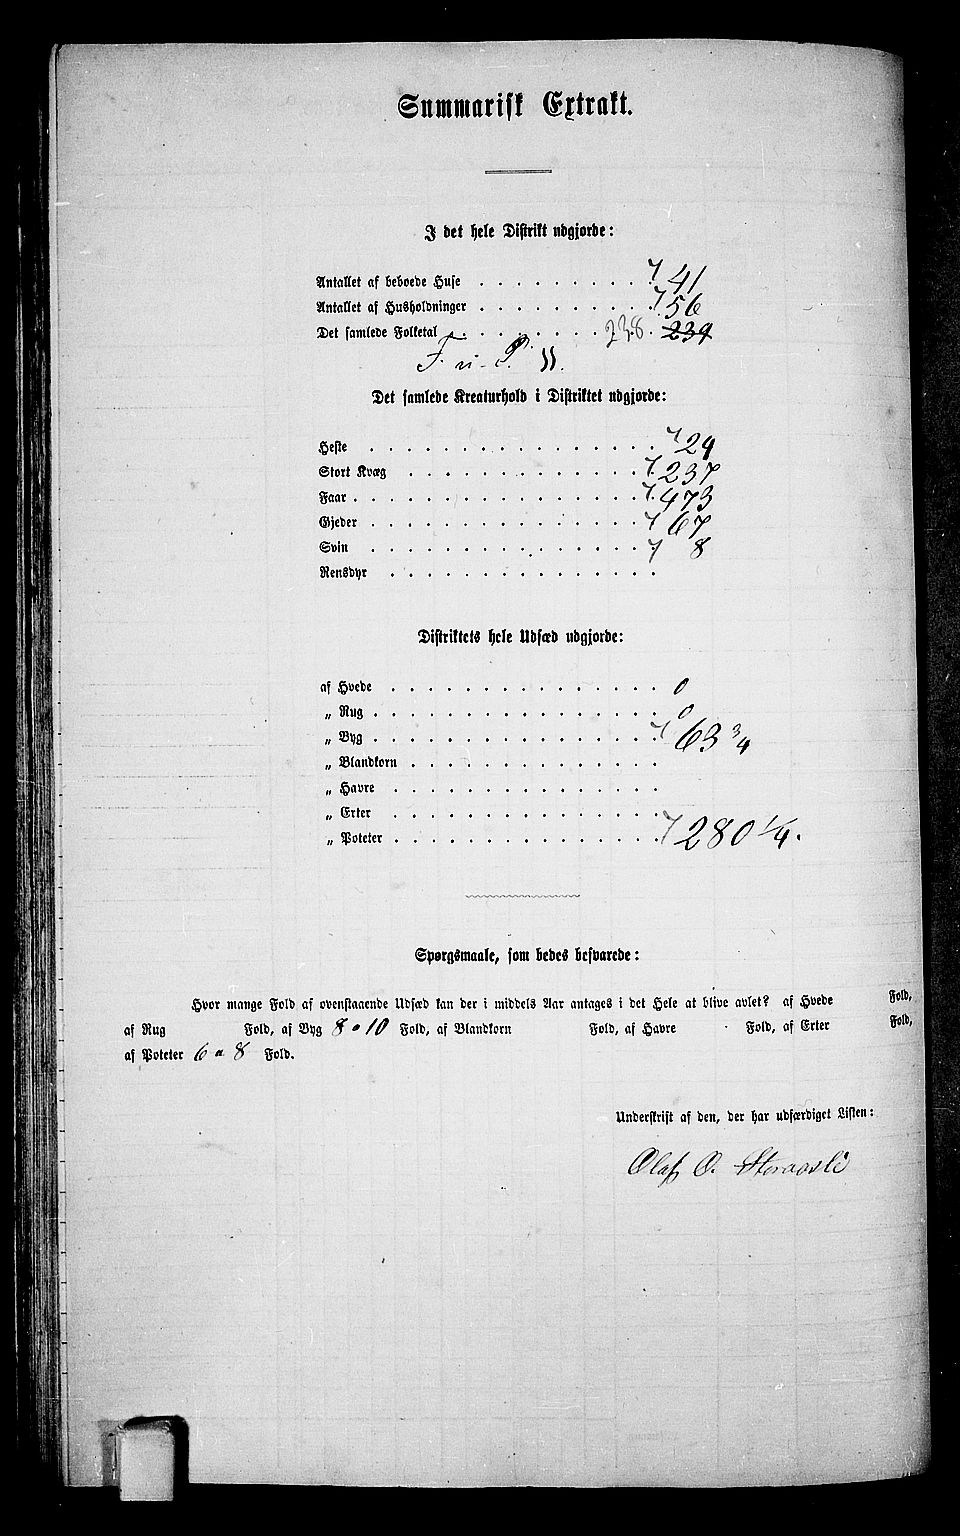 Summarisk Extrakt.
I det hele Distrikt udgjorde:
Antallet af beboede Huse . . . . . . . . . . 41
Antallet af Husholdninger . . . . . . . . . . 56
Det samlede Folketal . . . . . . . . . 238. 239
Det samlede Kreaturhold i Distriktet udgjorde:
Heste . . . . . . . . . . . . . . . . 29
Stort Kvæg . . . . . . . . . . . . . 237
Faar . . . . . . . . . . . . . . . . 473
Gjeder . . . . . . . . . . . . . . . 67
Svin . . . . . . . . . . . . . . . . 8
Rensdyr . . . . . . . . . . . . . . .
Distriktets hele Udsæd udgjorde:
af Hvede . . . . . . . . . . . . . . . 0
„ Rug . . . . . . . . . . . . . . . . 0
„ Byg . . . . . . . . . . . . . . . . 63 3/4
„ Blandkorn . . . . . . . . . . . . . .
„ Havre . . . . . . . . . . . . . . .
„ Erter . . . . . . . . . . . . . . .
„ Poteter . . . . . . . . . . . . . . . 280 1/4.
Spørgsmaale, som bedes besvarede:
Hvor mange Fold af ovenstaaende Udsæd kan der i middels Aar antages i det Hele at blive avlet? af Hvede Fold,
af Rug Fold, af Byg 8 a 10 Fold, af Blandkorn Fold, af Havre Fold, af Erter Fold,
af Poteter 6 a 8 Fold.
Underskrift af den, der har udfærdiget Listen:
Olaf O. Storaasli